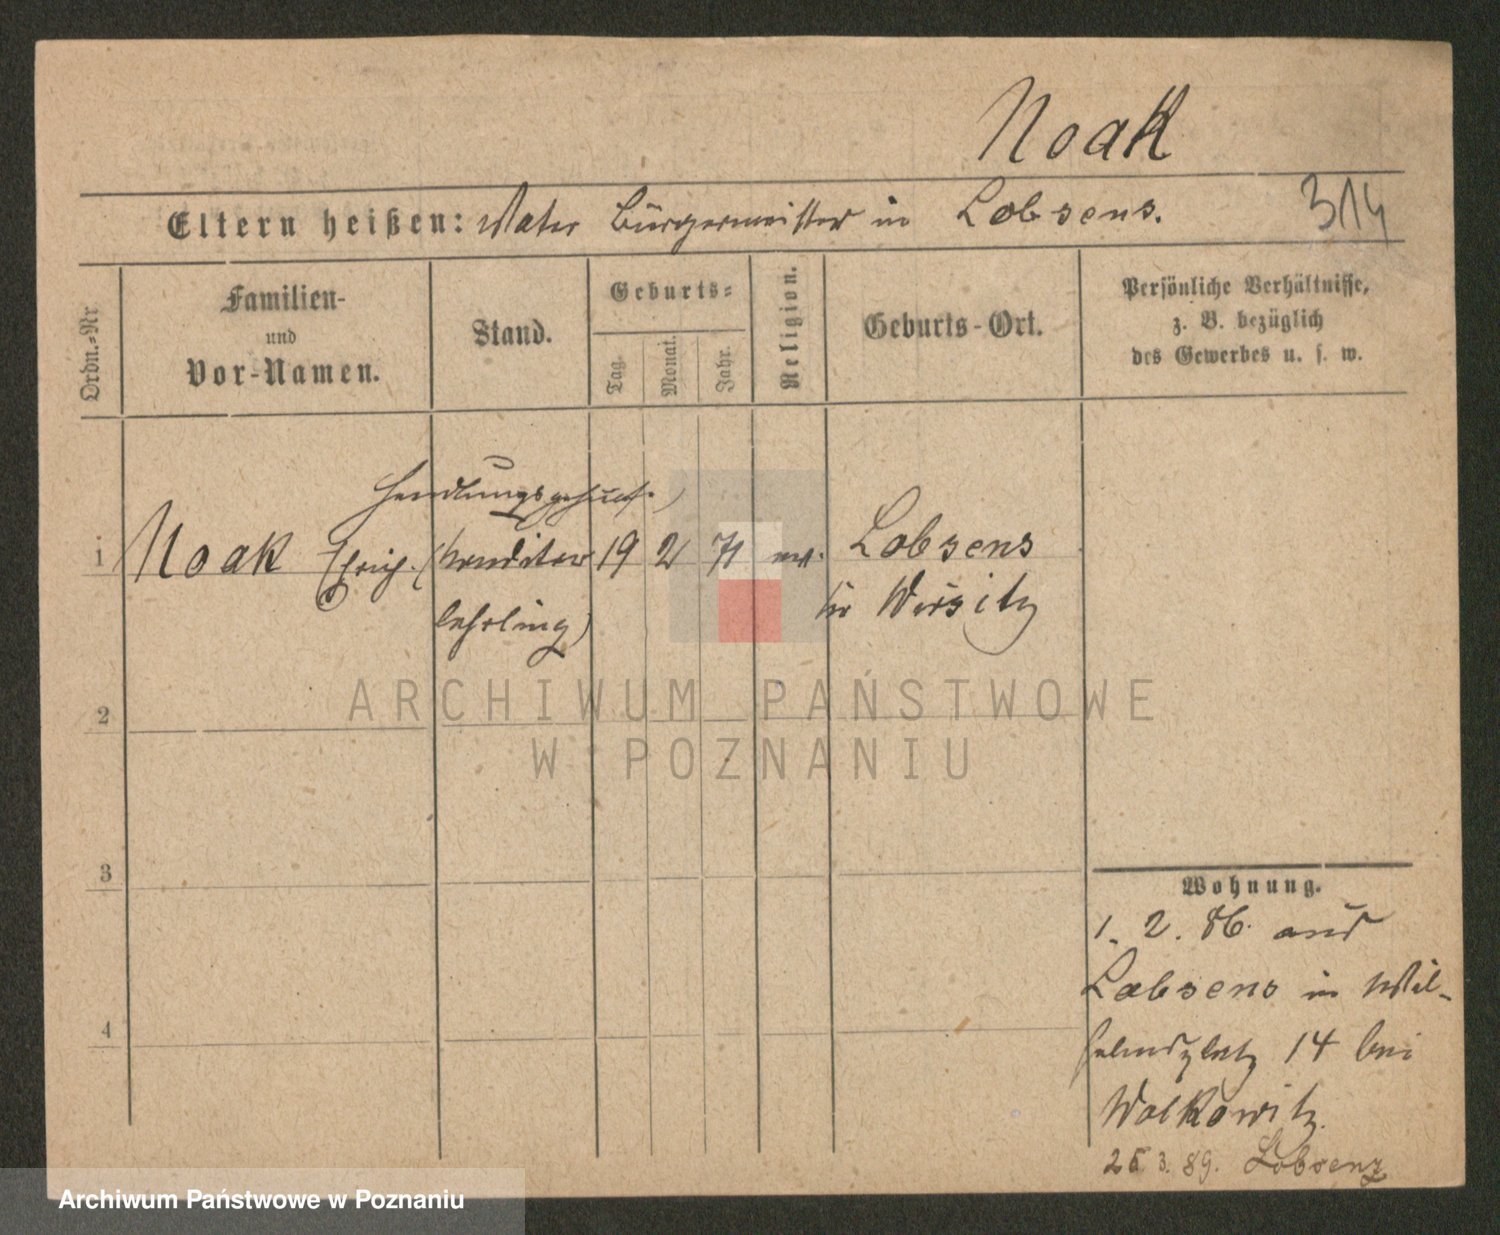 Noak
Eltern heißen: Vater Bürgermeister in Lobsens.
314
Ordn.-Nr
Familien-
und
Vor-Namen.
Stand.
Geburts-
Tag.
Monat.
Jahr.
Religion.
Geburts-Ort.
Persönliche Verhältnisse,
z. B. bezüglich
des Gewerbes u. s. w.
Handlungsgehülf.
1 Noak Erich. (Konditor 19 2 71 ev. Lobsens
lehrling)
Kr Wirsitz
2
3
4
Wohnung.
1. 2. 86. aus
Lobsens in Wil-
helmsplatz 14 bei
Wolkowitz.
3. 89. Lobsenz
ARCHIWUM PAŃSTWOWE
W POZNANIU
Archiwum Państwowe w Poznaniu